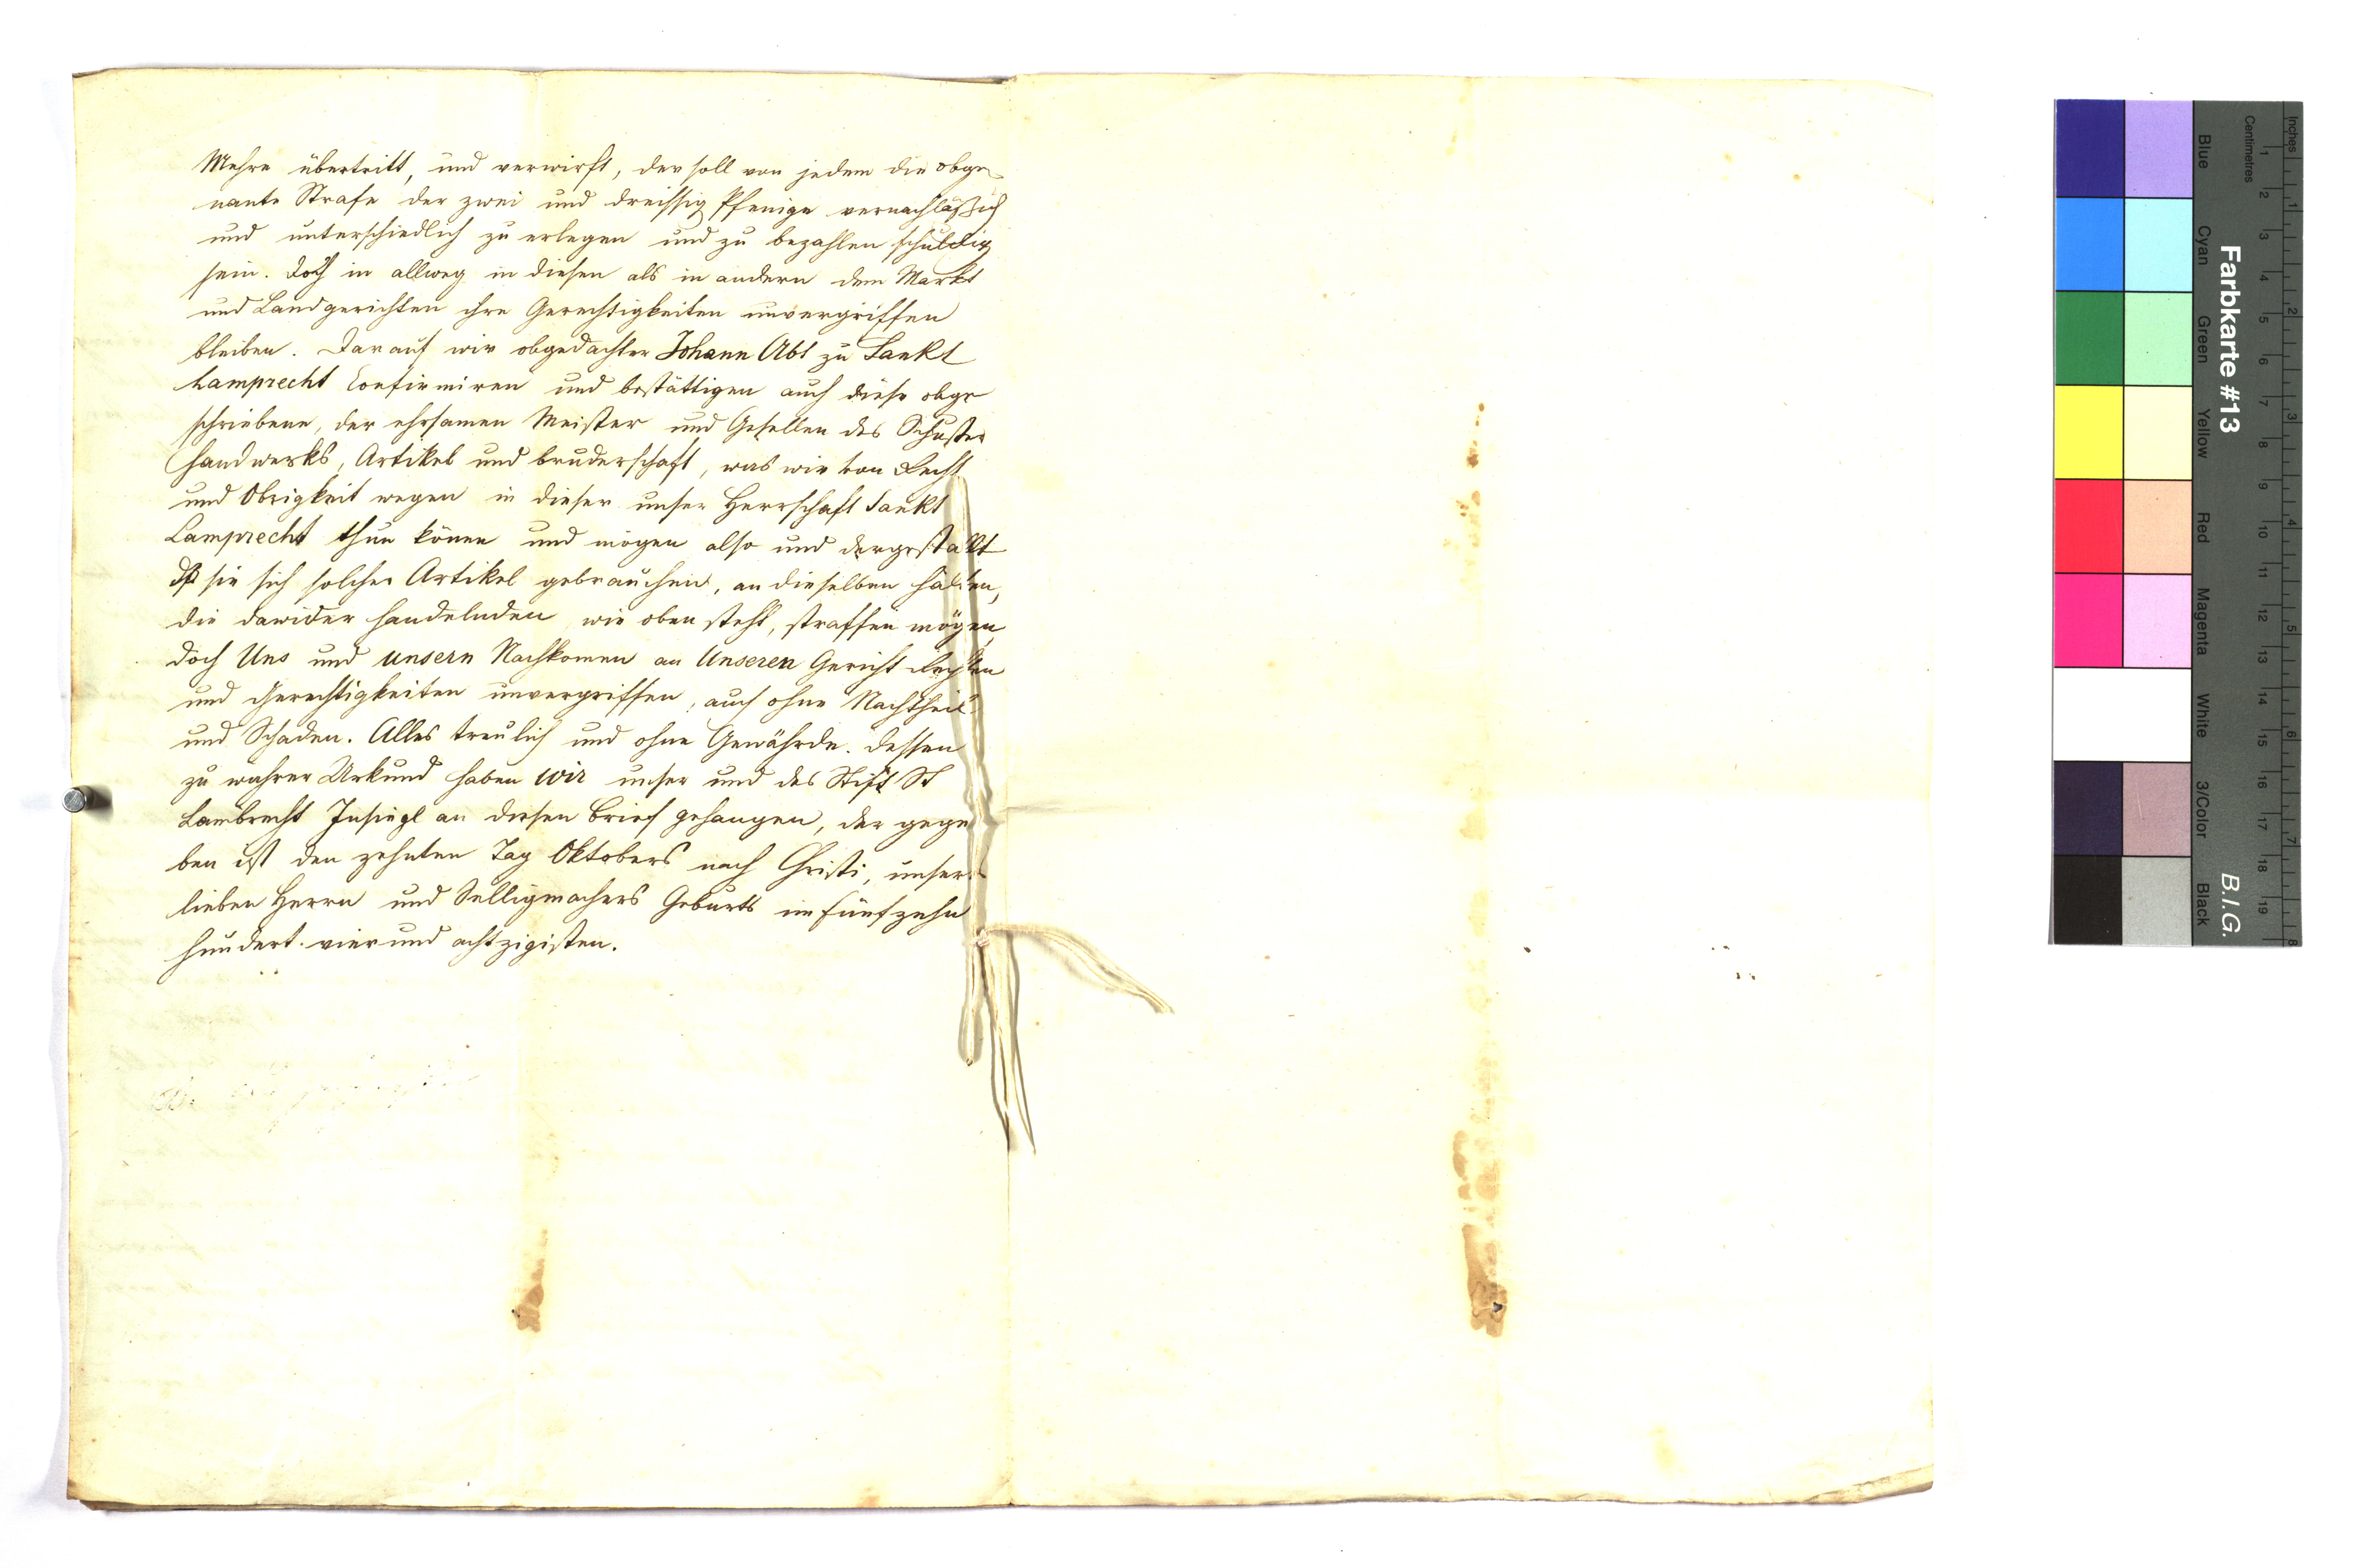 Mehre übertritt, und verwirft, der soll von jedem die obge-
nante Strafe der zwei und dreissig Pfenige vernachläßich
und unterschiedlich zu erlegen und zu bezahlen schuldig
sein. Doch in allweg in diesen als in andern dem Markt
und Landgerichten ihre Gerechtigkeiten unvergriffen
bleiben. Darauf wir obgedachter Johann Abt zu Sankt
Lamprecht Confirmiren und bestättigen auch diese obge
schriebene, der ehrsamen Meister und Gesellen des Schuster
Handwerks, Artikel und bruderschaft, was wir von Recht
und Obrigkeit wegen in dieser unser Herrschaft Sankt
Lamprecht thun könen und mögen also und dergestallt
dß sie sich solcher Artikel gebrauchen, an dieselben halten,
die dawider handelnden wie oben steht, straffen mögen,
doch Uns und unsern Nachkomen an Unseren Gericht Rechten
und Gerechtigkeiten unvergriffen, auch ohne Nachtheil
und Schaden. Alles treulich und ohne Gewährde. Dessen
zu wahrer Urkund haben wir unser und des Stift St
Lambrecht Insiegl an diesen brief gehangen, der gege
ben ist den zehnten Tag Oktobers nach Christi, unsers
lieben Herrn und Selligmachers Geburts im fünfzehn
hundert vier und achtzigisten.
Farbkarte #13
B.I.G.
Inches
Centimetres
1 2 3 4 5 6 7 8 9 10 11 12 13 14 15 16 17 18 19
1 2 3 4 5 6 7 8
Blue
Cyan
Green
Yellow
Red
Magenta
White
3/Color
Black